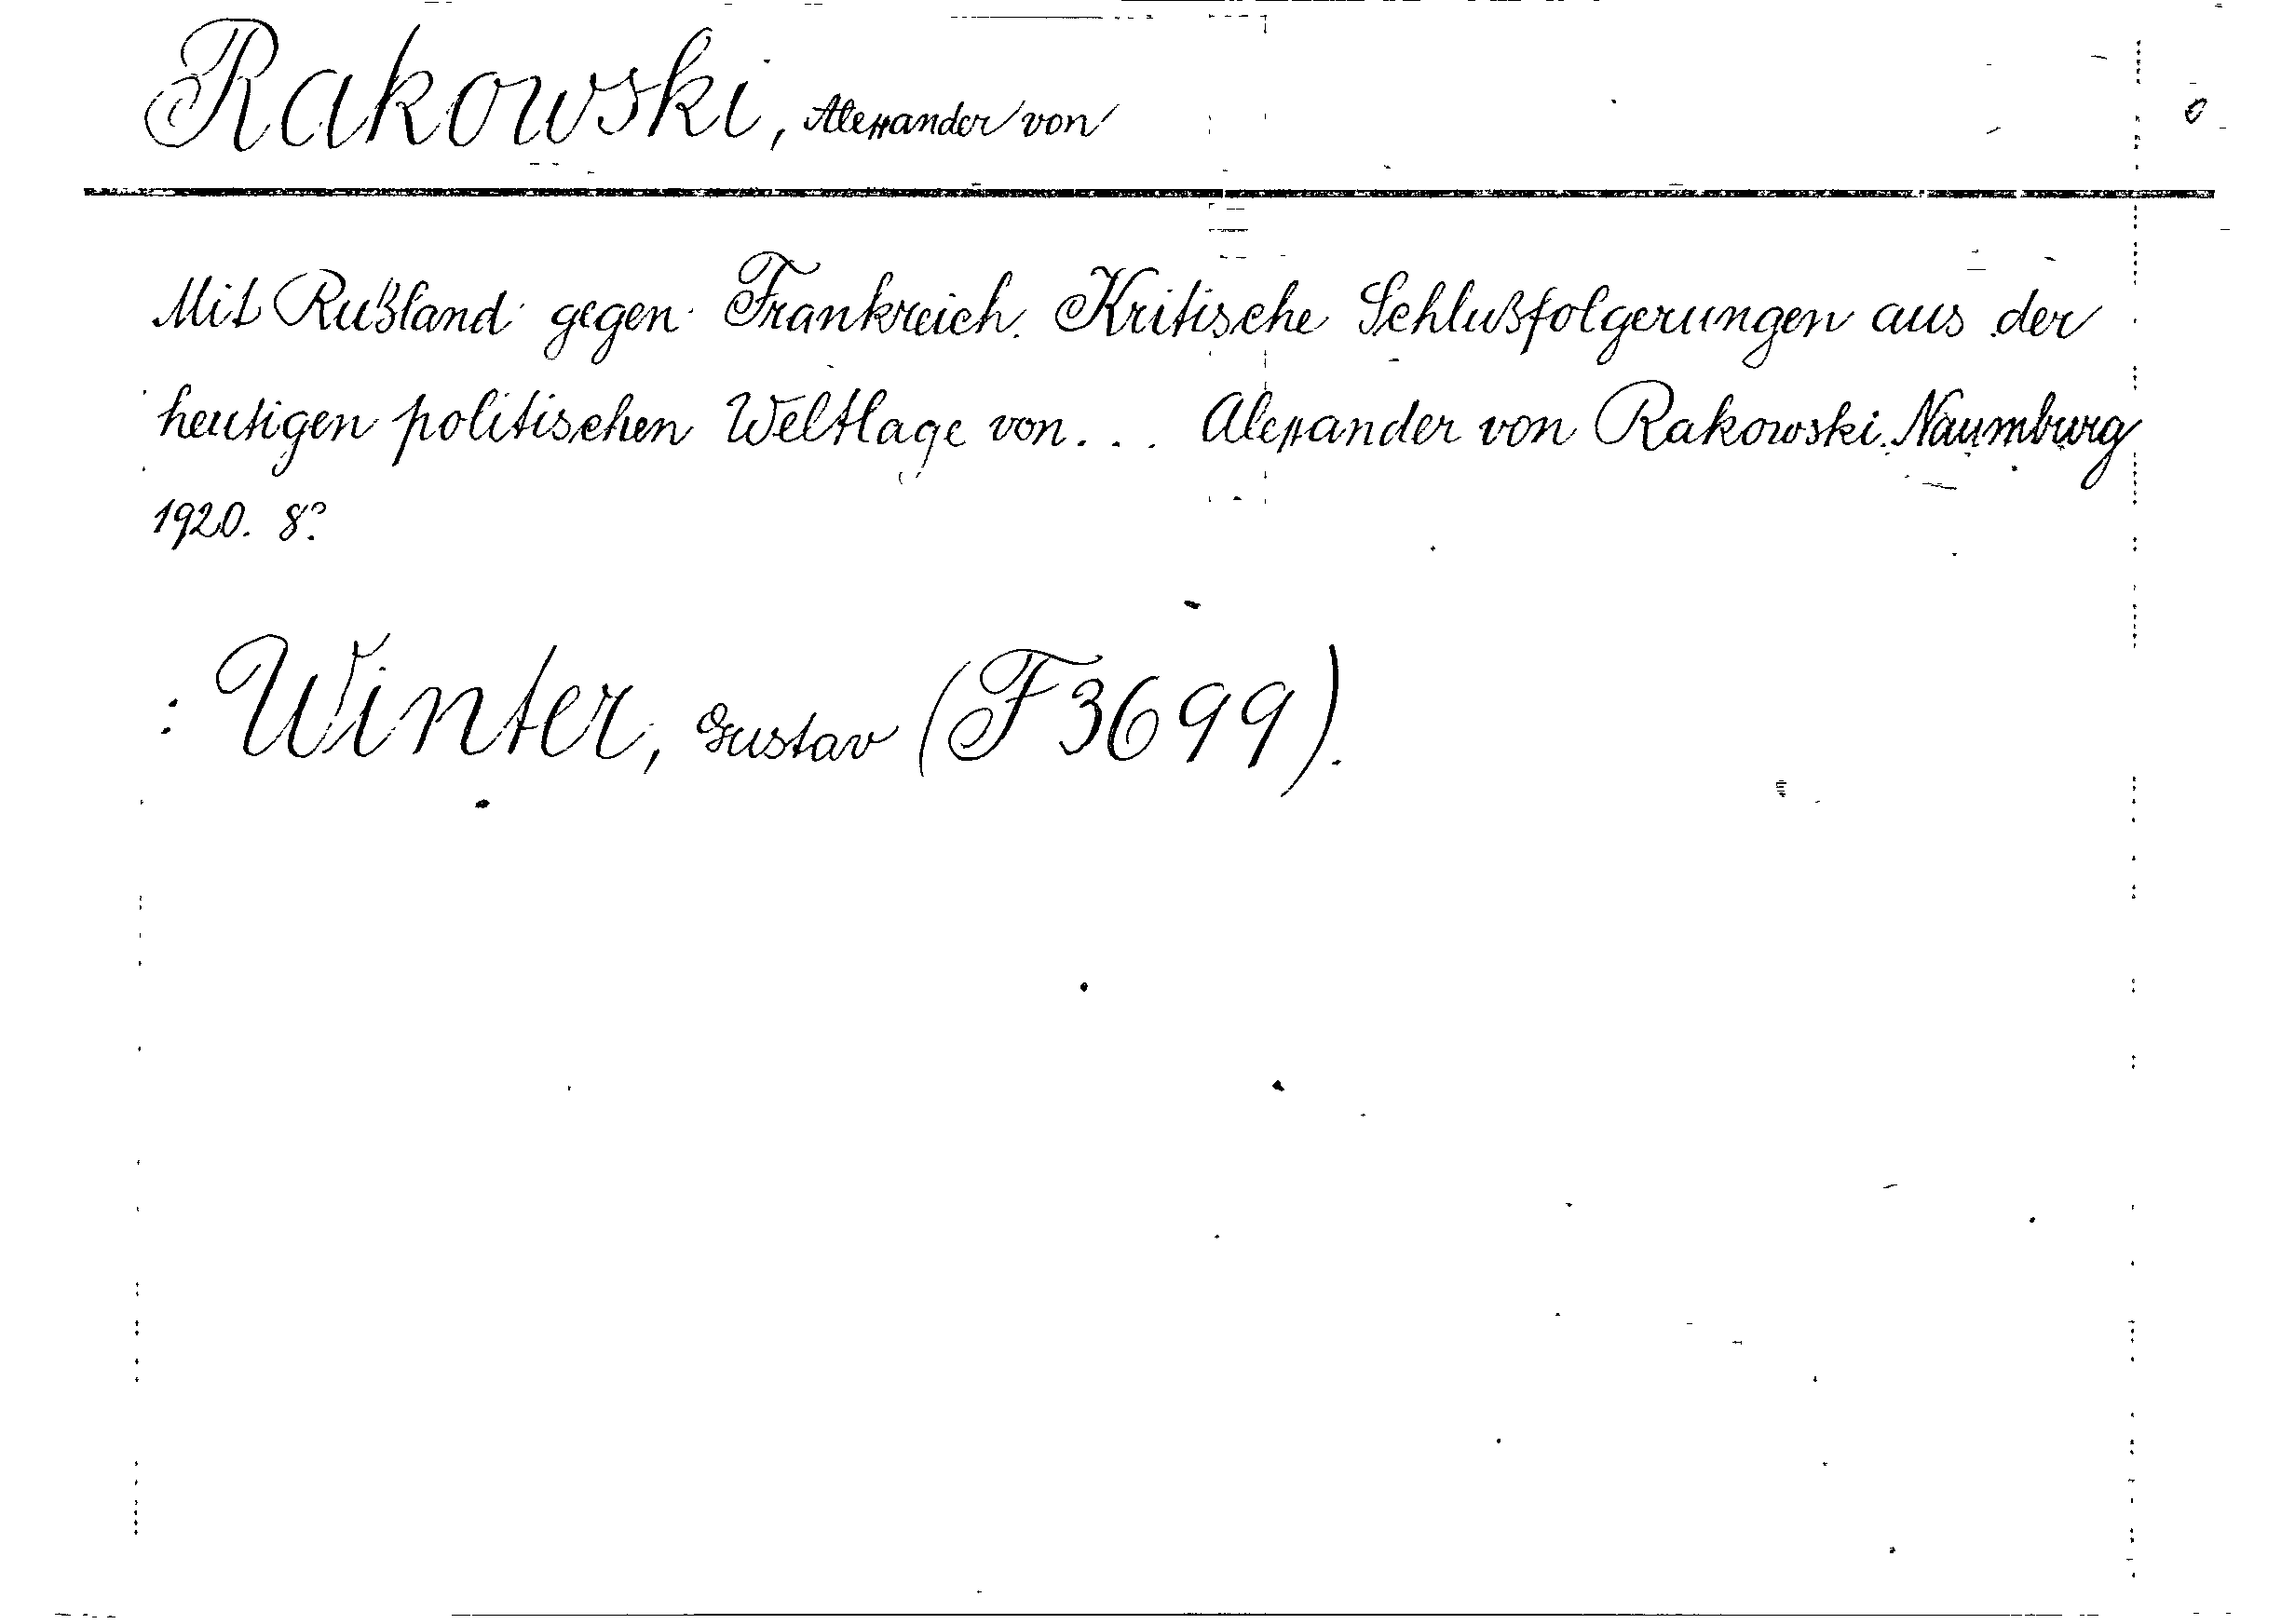 Rakowski, Alexander von
Mit Rußland gegen Frankreich. Kritische Schlußfolgerungen aus der
heutigen politischen Weltlage von... Alexander von Rakowski. Naumburg
1920. 8°.
: Winter, Gustav (F 3699).